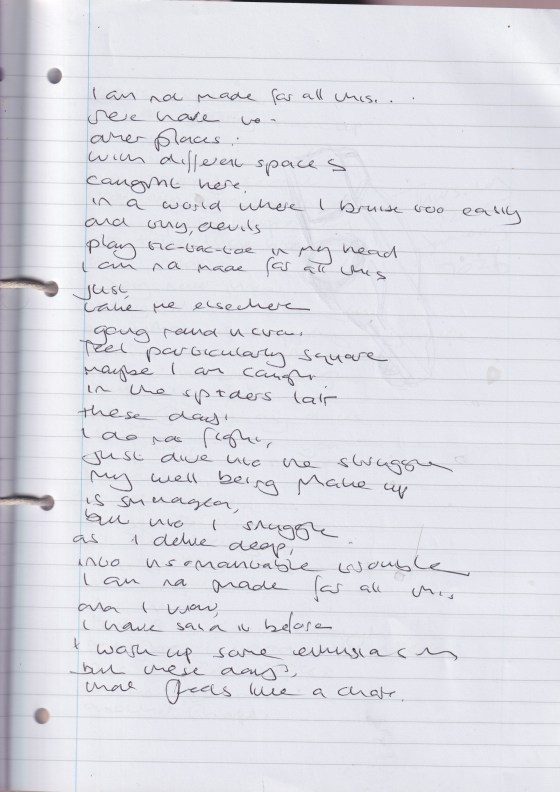 I am not made for all this...
there have to
other places.
with different spaces
caught here,
in a world where I bruise too easily
and tiny, devils
play tic-tac-toe in my head
I am not made for all this
just
take me elsewhere
going round
feel particularly square
maybe I am caught
in the spiders lair
these days
I do not fight,
just dive into the struggle
My well being Make up
is smudged,
but into I snuggle.
as I delve deep,
into trouble
I am not made for all this
and I know,
I have said it before
I wash up some enthusiasm
but these days,
that feels like a chore.